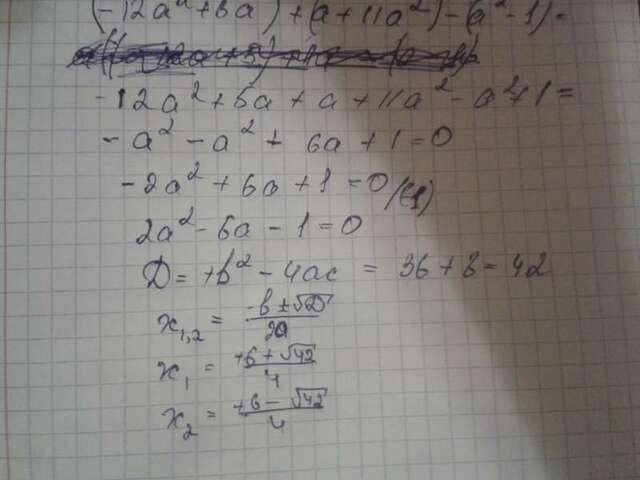 (-12a²+6a)+(a+11a²)-(a²-1)=
-12a²+5a+a+11a²-a²+1=
-a²-a²+6a+1=0
-2a²+6a+1=0/(-1)
2a²-6a-1=0
D=+b²-4ac=36+8=42
x₁,₂=(-b±√D)/2a
x₁=(+6+√42)/4
x₂=(+6-√42)/4